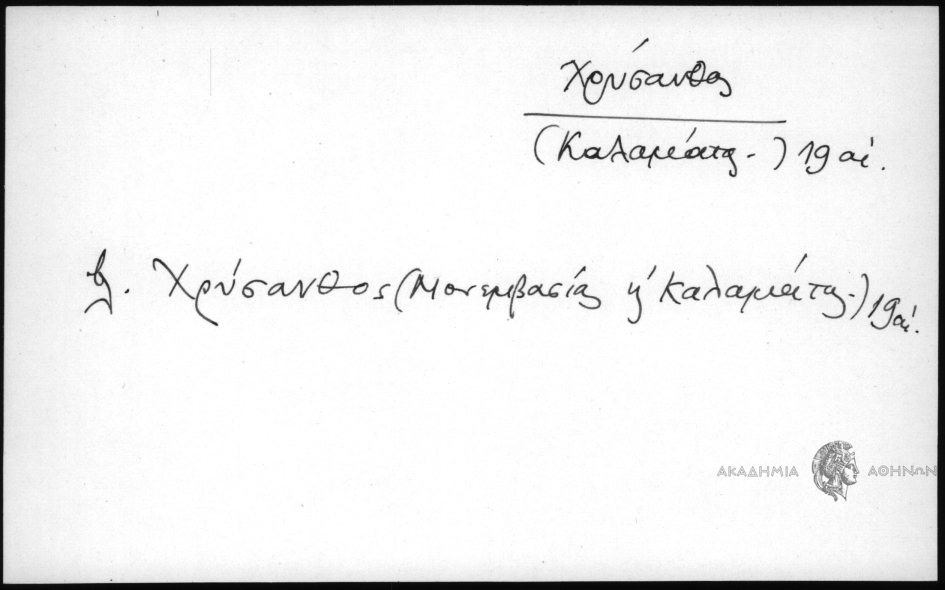 Χρύσανθος
(Καλαμάτα -) 19 αἰ.
β. Χρύσανθος (Μονεμβασίας ἤ Καλαμάτας -) 19 αἰ.
ΑΚΑΔΗΜΙΑ ΑΘΗΝΩΝ